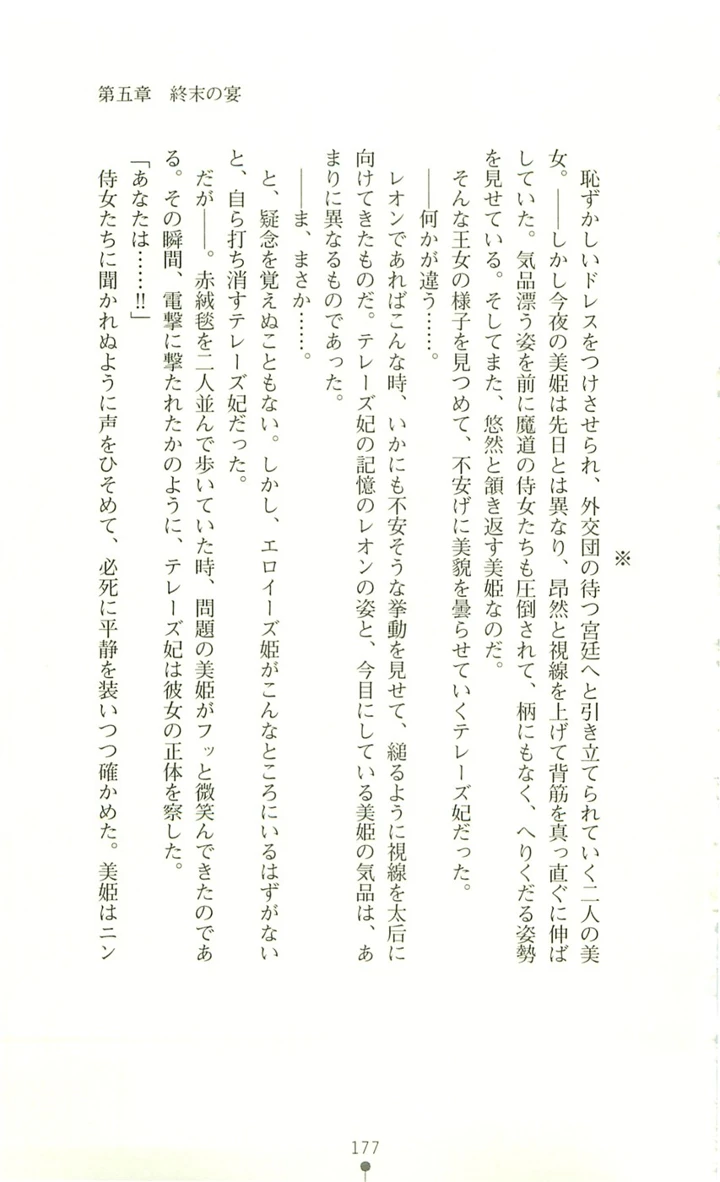 第五章　終末の宴
※
　恥ずかしいドレスをつけさせられ、外交団の待つ宮廷へと引き立てられていく二人の美
女。――しかし今夜の美姫は先日とは異なり、昂然と視線を上げて背筋を真っ直ぐに伸ば
していた。気品漂う姿を前に魔道の侍女たちも圧倒されて、柄にもなく、へりくだる姿勢
を見せている。そしてまた、悠然と頷き返す美姫なのだ。
　そんな王女の様子を見つめて、不安げに美貌を曇らせていくテレーズ妃だった。
　――何かが違う……。
　レオンであればこんな時、いかにも不安そうな挙動を見せて、縋るように視線を太后に
向けてきたものだ。テレーズ妃の記憶のレオンの姿と、今目にしている美姫の気品は、あ
まりに異なるものであった。
　――ま、まさか……。
　と、疑念を覚えぬこともない。しかし、エロイーズ姫がこんなところにいるはずがない
と、自ら打ち消すテレーズ妃だった。
　だが――。赤絨毯を二人並んで歩いていた時、問題の美姫がフッと微笑んできたのであ
る。その瞬間、電撃に撃たれたかのように、テレーズ妃は彼女の正体を察した。
「あなたは……!!」
　侍女たちに聞かれぬように声をひそめて、必死に平静を装いつつ確かめた。美姫はニン
177